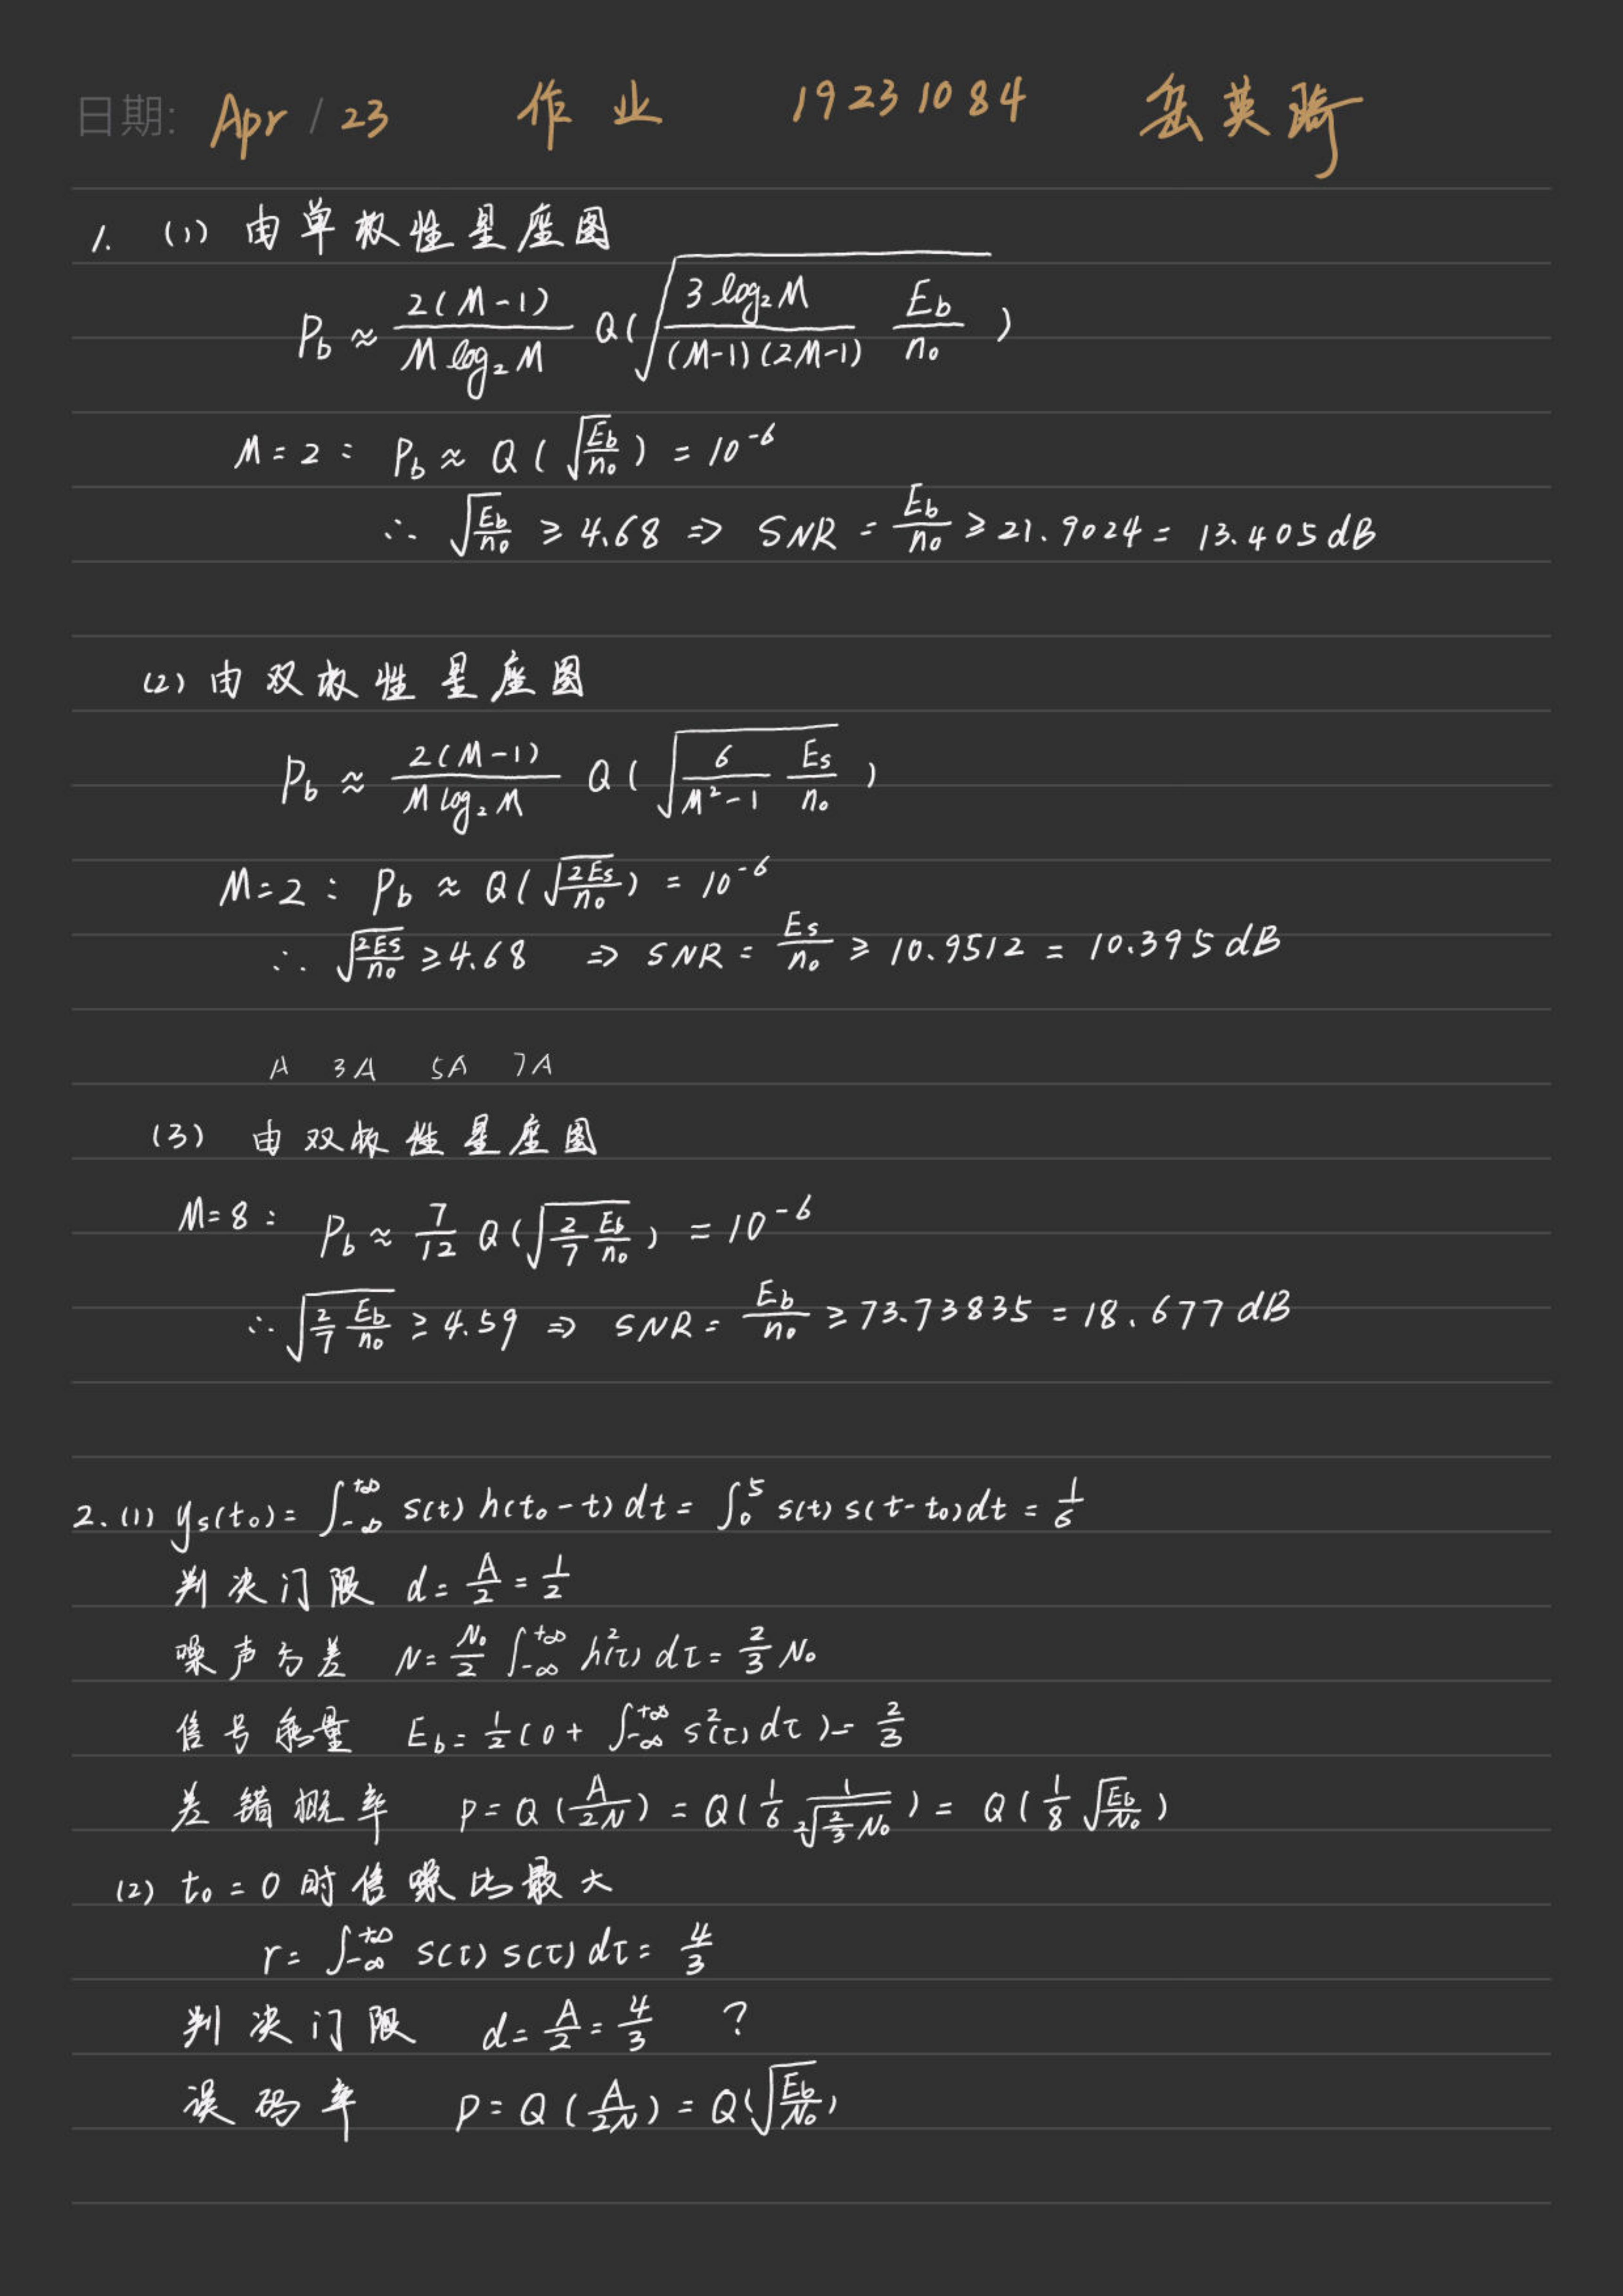 日期: Apr / 23 作业 19231084 岳英琦
1. (1) 由单极性星座图
P_b ≈ \frac{2(M-1)}{M log_2 M} Q(\sqrt{\frac{3 log_2 M}{(M-1)(2M-1)} \frac{E_b}{n_0}})
M=2: P_b ≈ Q(\sqrt{\frac{E_b}{n_0}}) = 10^{-6}
∴ \sqrt{\frac{E_b}{n_0}} ≥ 4.68 ⇒ SNR = \frac{E_b}{n_0} ≥ 21.9024 = 13.405dB
(2) 由双极性星座图
P_b ≈ \frac{2(M-1)}{M log_2 M} Q(\sqrt{\frac{6}{M^2-1} \frac{E_s}{n_0}})
M=2: P_b ≈ Q(\sqrt{\frac{2E_s}{n_0}}) = 10^{-6}
∴ \sqrt{\frac{2E_s}{n_0}} ≥ 4.68 ⇒ SNR = \frac{E_s}{n_0} ≥ 10.9512 = 10.395dB
A 3A 5A 7A
(3) 由双极性星座图
M=8: P_b ≈ \frac{7}{12} Q(\sqrt{\frac{2}{7} \frac{E_b}{n_0}}) = 10^{-6}
∴ \sqrt{\frac{2}{7} \frac{E_b}{n_0}} ≥ 4.59 ⇒ SNR = \frac{E_b}{n_0} ≥ 73.73835 = 18.677dB
2. (1) y_s(t_0) = ∫_{-∞}^{+∞} s(t) h(t_0-t) dt = ∫_0^5 s(t) s(t-t_0) dt = \frac{1}{6}
判决门限 d = \frac{A}{2} = \frac{1}{2}
噪声方差 N = \frac{N_0}{2} ∫_{-∞}^{+∞} h^2(τ) dτ = \frac{2}{3} N_0
信号能量 E_b = \frac{1}{2} (0 + ∫_{-∞}^{+∞} s^2(τ) dτ) = \frac{2}{3}
差错概率 P = Q(\frac{A}{2N}) = Q(\frac{1}{6} \frac{1}{2\sqrt{\frac{2}{3} N_0}}) = Q(\frac{1}{8} \sqrt{\frac{E_b}{N_0}})
(2) t_0 = 0 时信噪比最大
r = ∫_{-∞}^{+∞} s(τ) s(τ) dτ = \frac{4}{3}
判决门限 d = \frac{A}{2} = \frac{4}{3} ?
误码率 P = Q(\frac{A}{2N}) = Q(\sqrt{\frac{E_b}{N_0}})